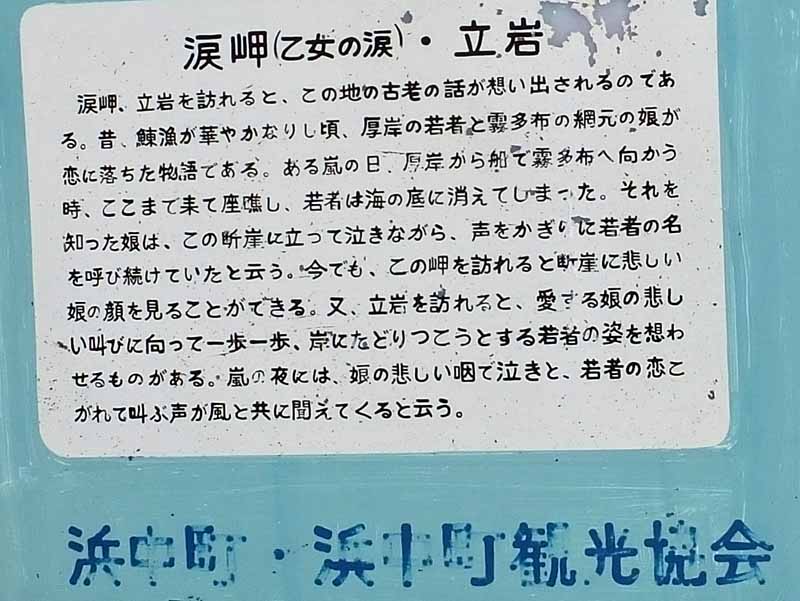 涙岬(乙女の涙)・立岩
涙岬、立岩を訪れると、この地の古老の話が想い出されるのであ
る。昔、鰊漁が華やかなりし頃、厚岸の若者と霧多布の網元の娘が
恋に落ちた物語である。ある嵐の日、厚岸から船で霧多布へ向かう
時、ここまで来て座礁し、若者は海の底に消えてしまった。それを
知った娘は、この断崖に立って泣きながら、声をかぎりに若者の名
を呼び続けていたと云う。今でも、この岬を訪れると断崖に悲しい
娘の顔を見ることができる。又、立岩を訪れると、愛する娘の悲し
い叫びに向って一歩一歩、岸にたどりつこうとする若者の姿を想わ
せるものがある。嵐の夜には、娘の悲しい咽で泣きと、若者の恋こ
がれて叫ぶ声が風と共に聞えてくると云う。
浜中町・浜中町観光協会